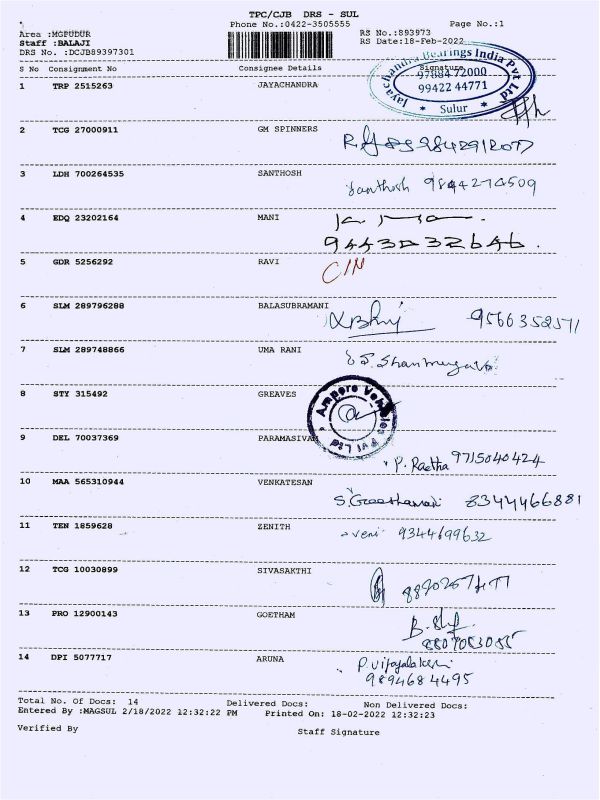 TPC/CJB DRS - SUL
Phone No.:0422-3505555 Page No.:1
Area :MGPUDUR RS No.:893973
Staff :BALAJI RS Date:18-Feb-2022
DRS No. :DCJB89397301
S No Consignment No Consignee Details Signature
Jayachandra Bearings India Pvt Ltd
97884 72000
99422 44771
* Sulur *
1 TRP 2515263 JAYACHANDRA
2 TCG 27000911 GM SPINNERS
3 LDH 700264535 SANTHOSH
Santhosh 9844274509
4 EDQ 23202164 MANI
9443032646.
5 GDR 5256292 RAVI
CIN
6 SLM 289796288 BALASUBRAMANI
9566352571
7 SLM 289748866 UMA RANI
8 STY 315492 GREAVES
Ampere Vehicles Pvt Ltd
9 DEL 70037369 PARAMASIVAM
P. Raetha 9715040424
10 MAA 565310944 VENKATESAN
8344466881
11 TEN 1859628 ZENITH
veni 9344699632
12 TCG 10030899 SIVASAKTHI
13 PRO 12900143 GOETHAM
14 DPI 5077717 ARUNA
P. Vijayalakshmi
9894684495
Total No. Of Docs: 14 Delivered Docs: Non Delivered Docs:
Entered By :MAGSUL 2/18/2022 12:32:22 PM Printed On: 18-02-2022 12:32:23
Verified By Staff Signature